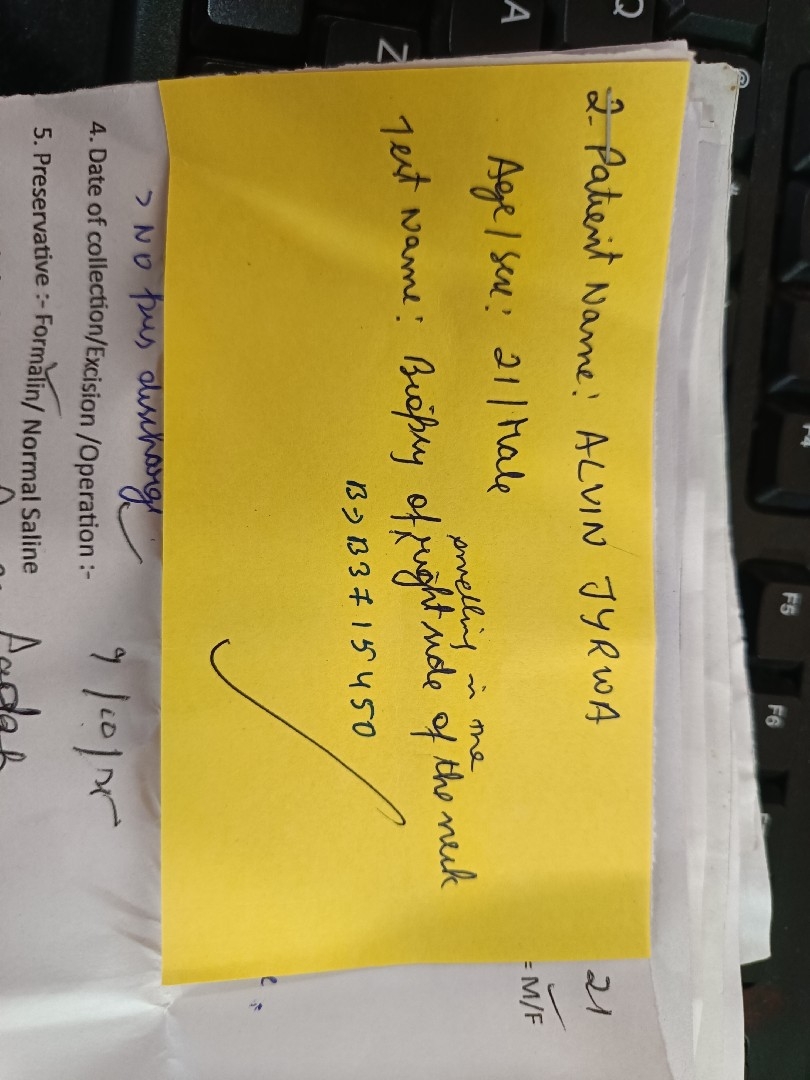 2. Patient Name: ALVIN JYRWA
Age/sex: 21/Male
swelling in the
Test Name: Biopsy of right side of the neck
B->B3715450
21
= M/F
> No pus discharge
4. Date of collection/Excision /Operation :- 9/10/25
5. Preservative :- Formalin/ Normal Saline
Q
A
Z
F5
F6